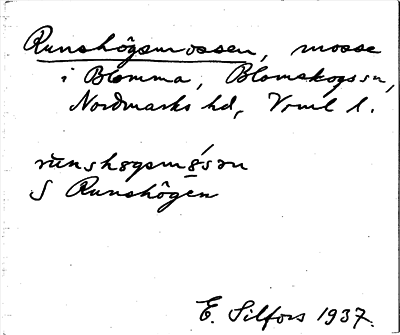 Runshögsmossen, mosse
i Blomma, Blomskogs sn,
Nordmarks hd, Vrml l.
rùnshøgsmósən
S Runshögen
E. Silfors 1937.